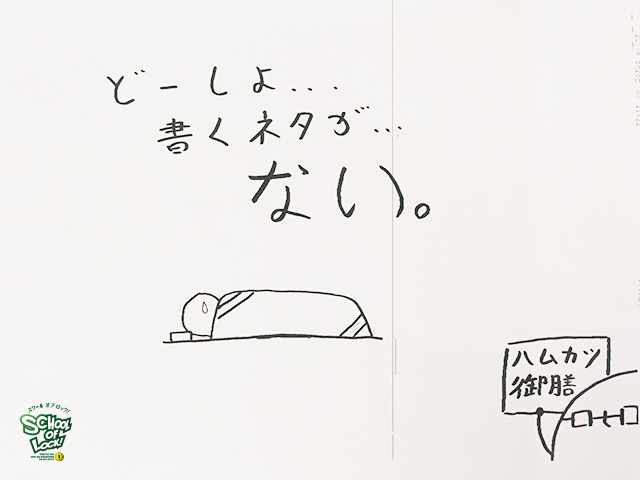 どーしよ...
書くネタが...
ない。
ハムカツ
御膳
スクール オブ ロック!
SCHOOL
OF
LOCK!